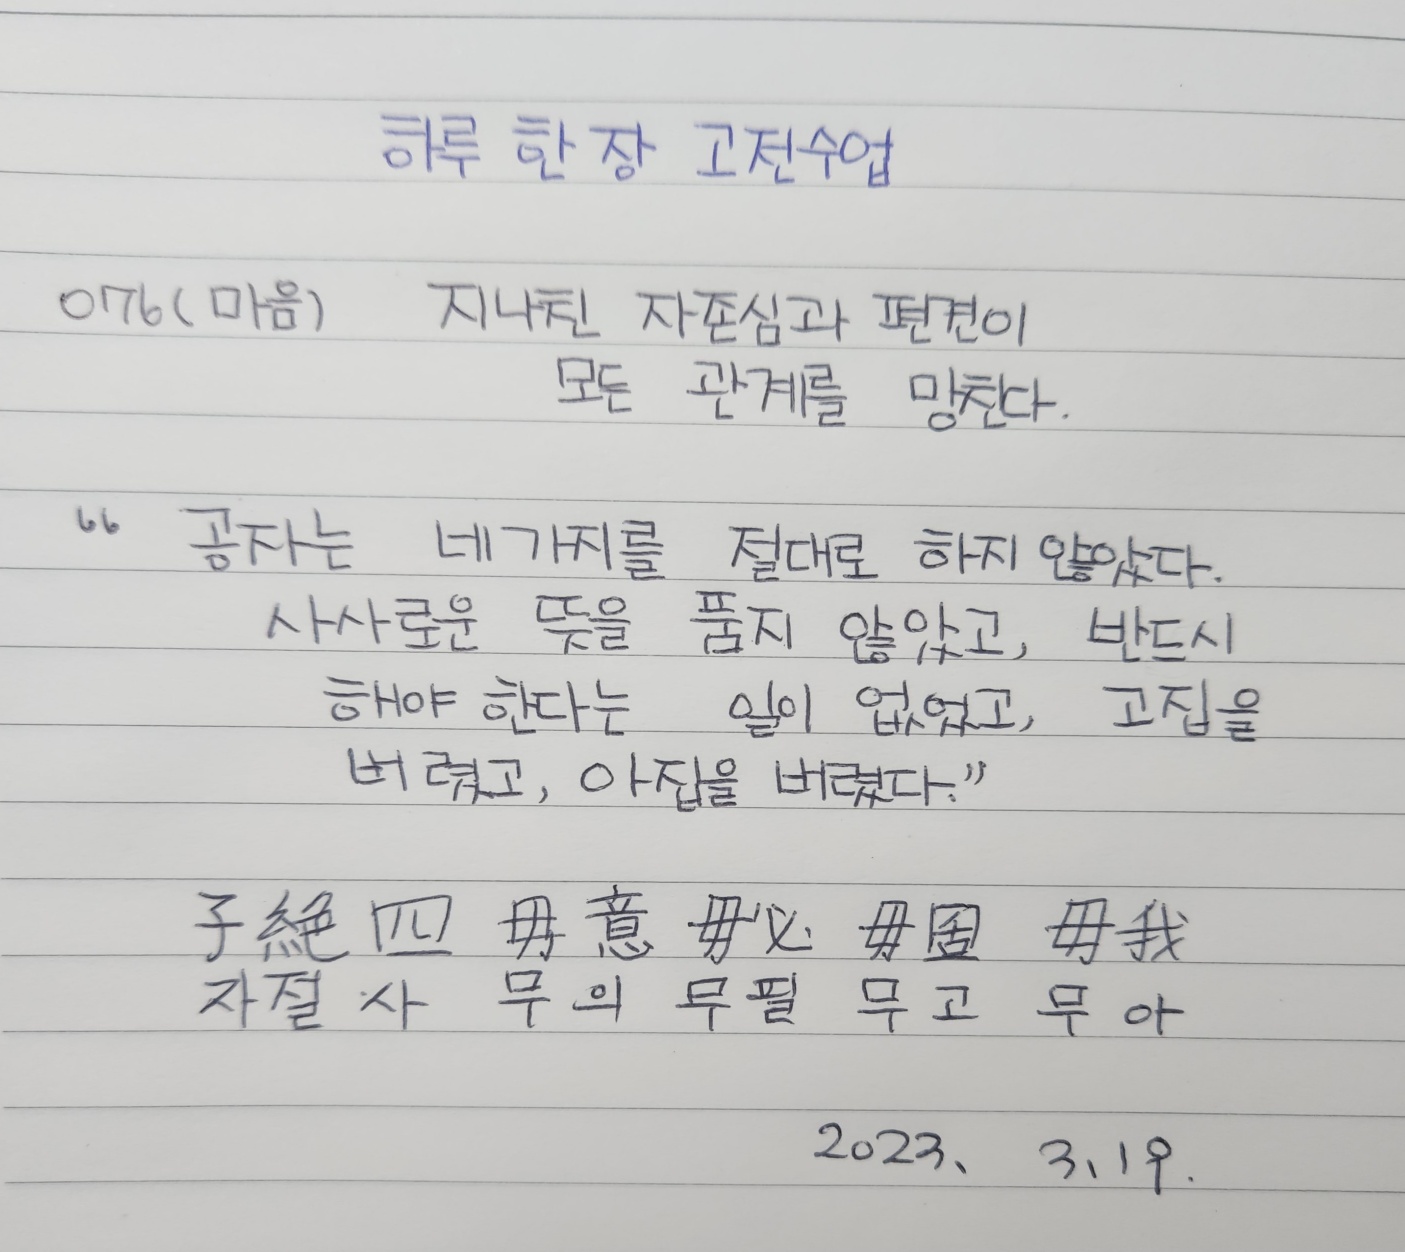 하루 한 장 고전수업
076(마음) 지나친 자존심과 편견이
모든 관계를 망친다.
“ 공자는 네가지를 절대로 하지 않았다.
사사로운 뜻을 품지 않았고, 반드시
해야 한다는 일이 없었고, 고집을
버렸고, 아집을 버렸다.”
子絶四 毋意 毋必 毋固 毋我
자절사 무의 무필 무고 무아
2023. 3.19.